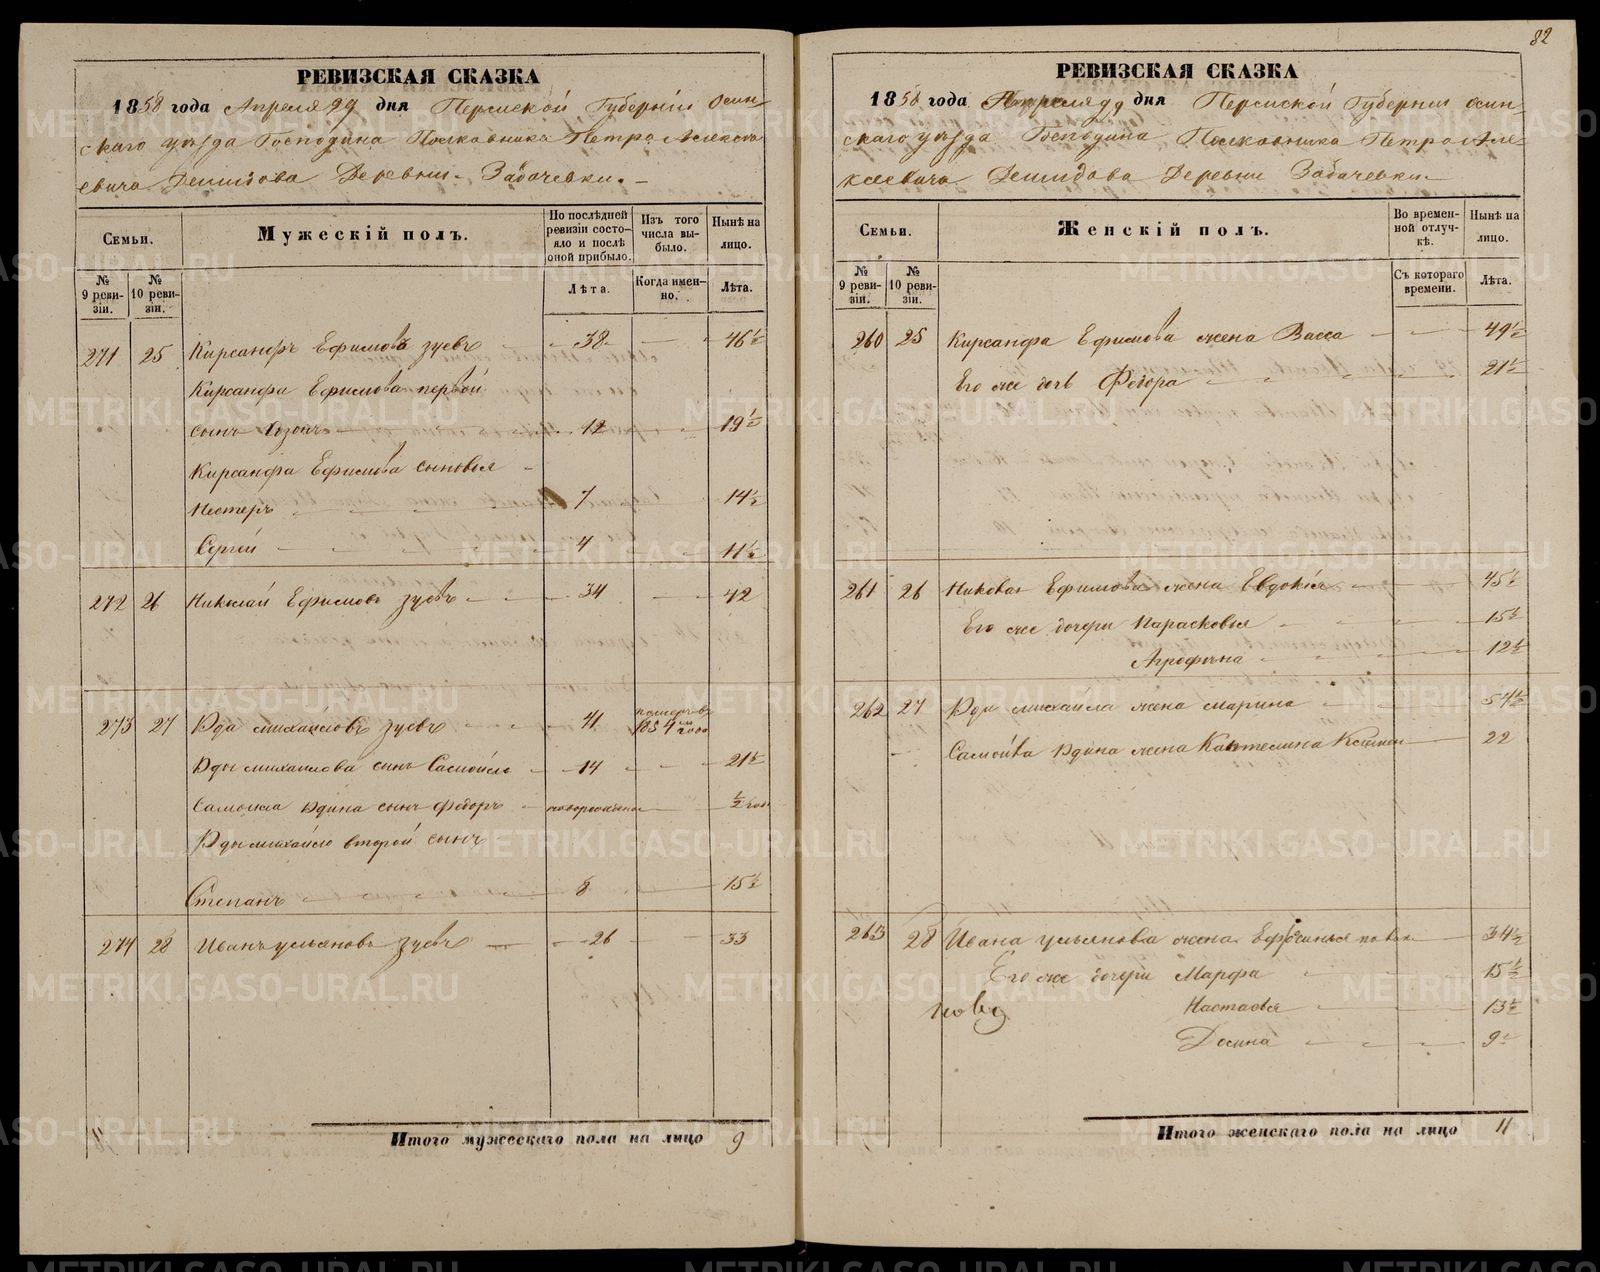 82
РЕВИЗСКАЯ СКАЗКА
1858 года Апреля 29 дня Пермской Губернии Осин-
скаго уезда Господина Полковника Петра Алексе
евича Демидова Деревни Забачевки.
Семьи.
Мужескій полъ.
По послѣдней ревизіи состояло и послѣ оной прибыло.
Изъ того числа выбыло.
Нынѣ на лицо.
№ 9 ревизіи.
№ 10 ревизіи.
Лѣта.
Когда именно.
Лѣта.
271 25 Кирсанфъ Ефимовъ Зуевъ 38 46½
Кирсанфа Ефимова первой
сынъ 12 19½
Кирсанфа Ефимова сыновья
Нестеръ 7 14½
Сергей 4 11½
272 26 Николай Ефимовъ Зуевъ 34 42
273 27 Михайловъ Зуевъ 41 померъ въ 1854 году
Михайлова сынъ Самойло 14 21½
Самойла сынъ Федоръ новорожденной ½ года
второй сынъ
Степанъ 8 15½
274 28 Иванъ Ульяновъ Зуевъ 26 33
Итого мужескаго пола на лицо 9
РЕВИЗСКАЯ СКАЗКА
1858 года Апреля 29 дня Пермской Губернии Осин-
скаго уезда Господина Полковника Петра Але-
ксеевича Демидова Деревни Забачевки
Семьи.
Женскій полъ.
Во временной отлучкѣ.
Нынѣ на лицо.
№ 9 ревизіи.
№ 10 ревизіи.
Съ котораго времени.
Лѣта.
260 25 Кирсанфа Ефимова жена Васса 49½
Его же дочь Федора 21½
261 26 Николая Ефимова жена Евдокія 45½
Его же дочери Парасковья 15½
Агрофена 12½
262 27 Михайла жена Марина 54½
Самойла жена 22
263 28 Ивана Ульянова жена Ефросинья 34½
Его же дочери Марфа 15½
Настасья 13½
9
Итого женскаго пола на лицо 11
METRIKI.GASO-URAL.RU